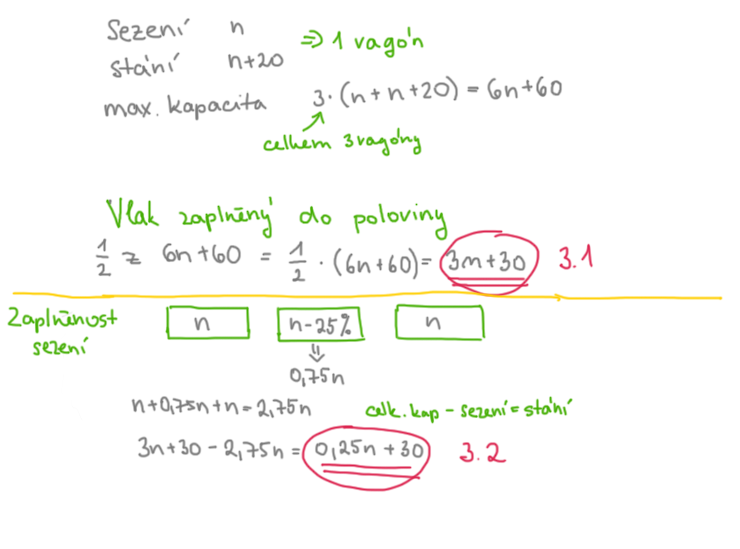 Sezení n
⇒ 1 vagón
stání n+20
max. kapacita 3·(n+n+20) = 6n+60
celkem 3 vagóny
Vlak zaplněný do poloviny
1/2 z 6n+60 = 1/2 · (6n+60) = 3n+30 3.1
Zaplněnost
sezení
n n-25% n
⇓
0,75n
n+0,75n+n=2,75n celk. kap - sezení = stání
3n+30 - 2,75n = 0,25n + 30 3.2